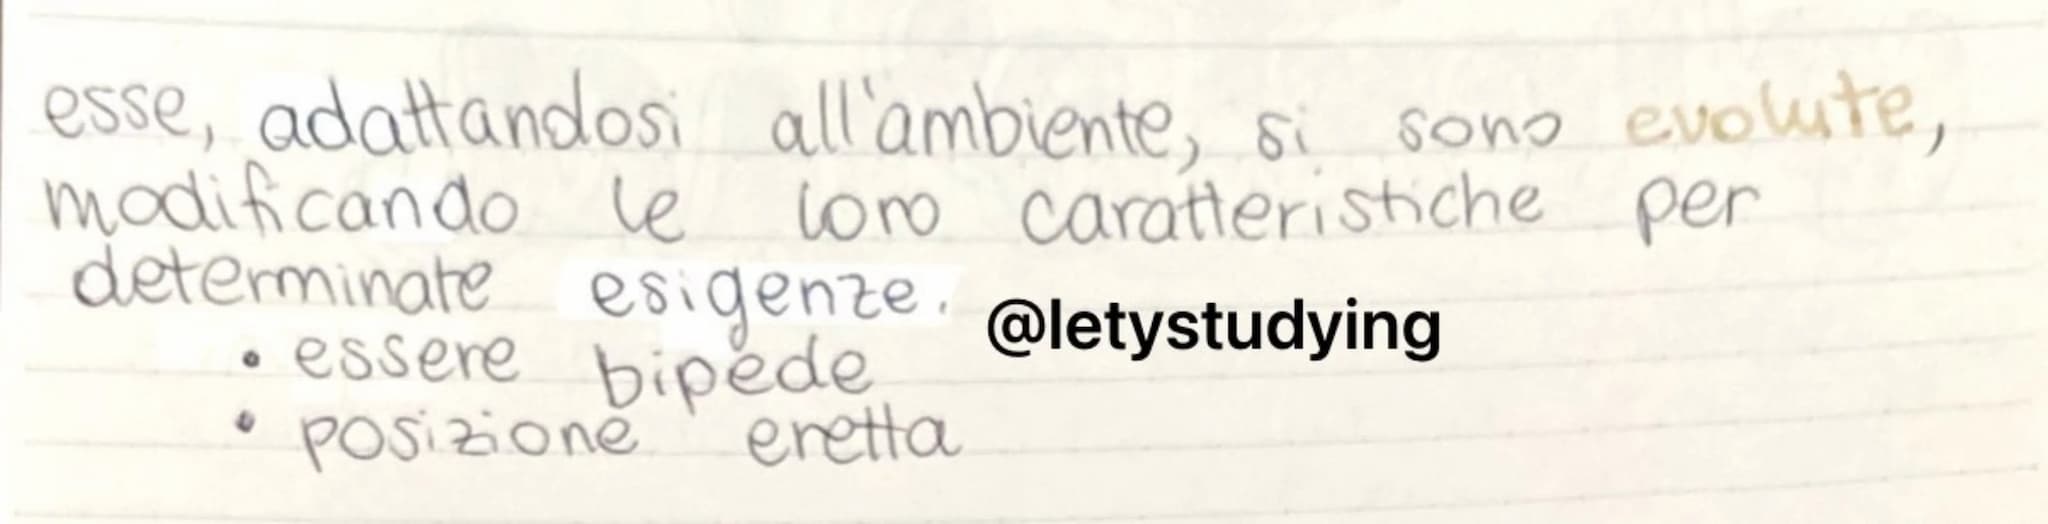 esse, adattandosi all'ambiente, si sono evolute,
modificando le loro caratteristiche per
determinate esigenze.
@letystudying
• essere bipede
• posizione eretta